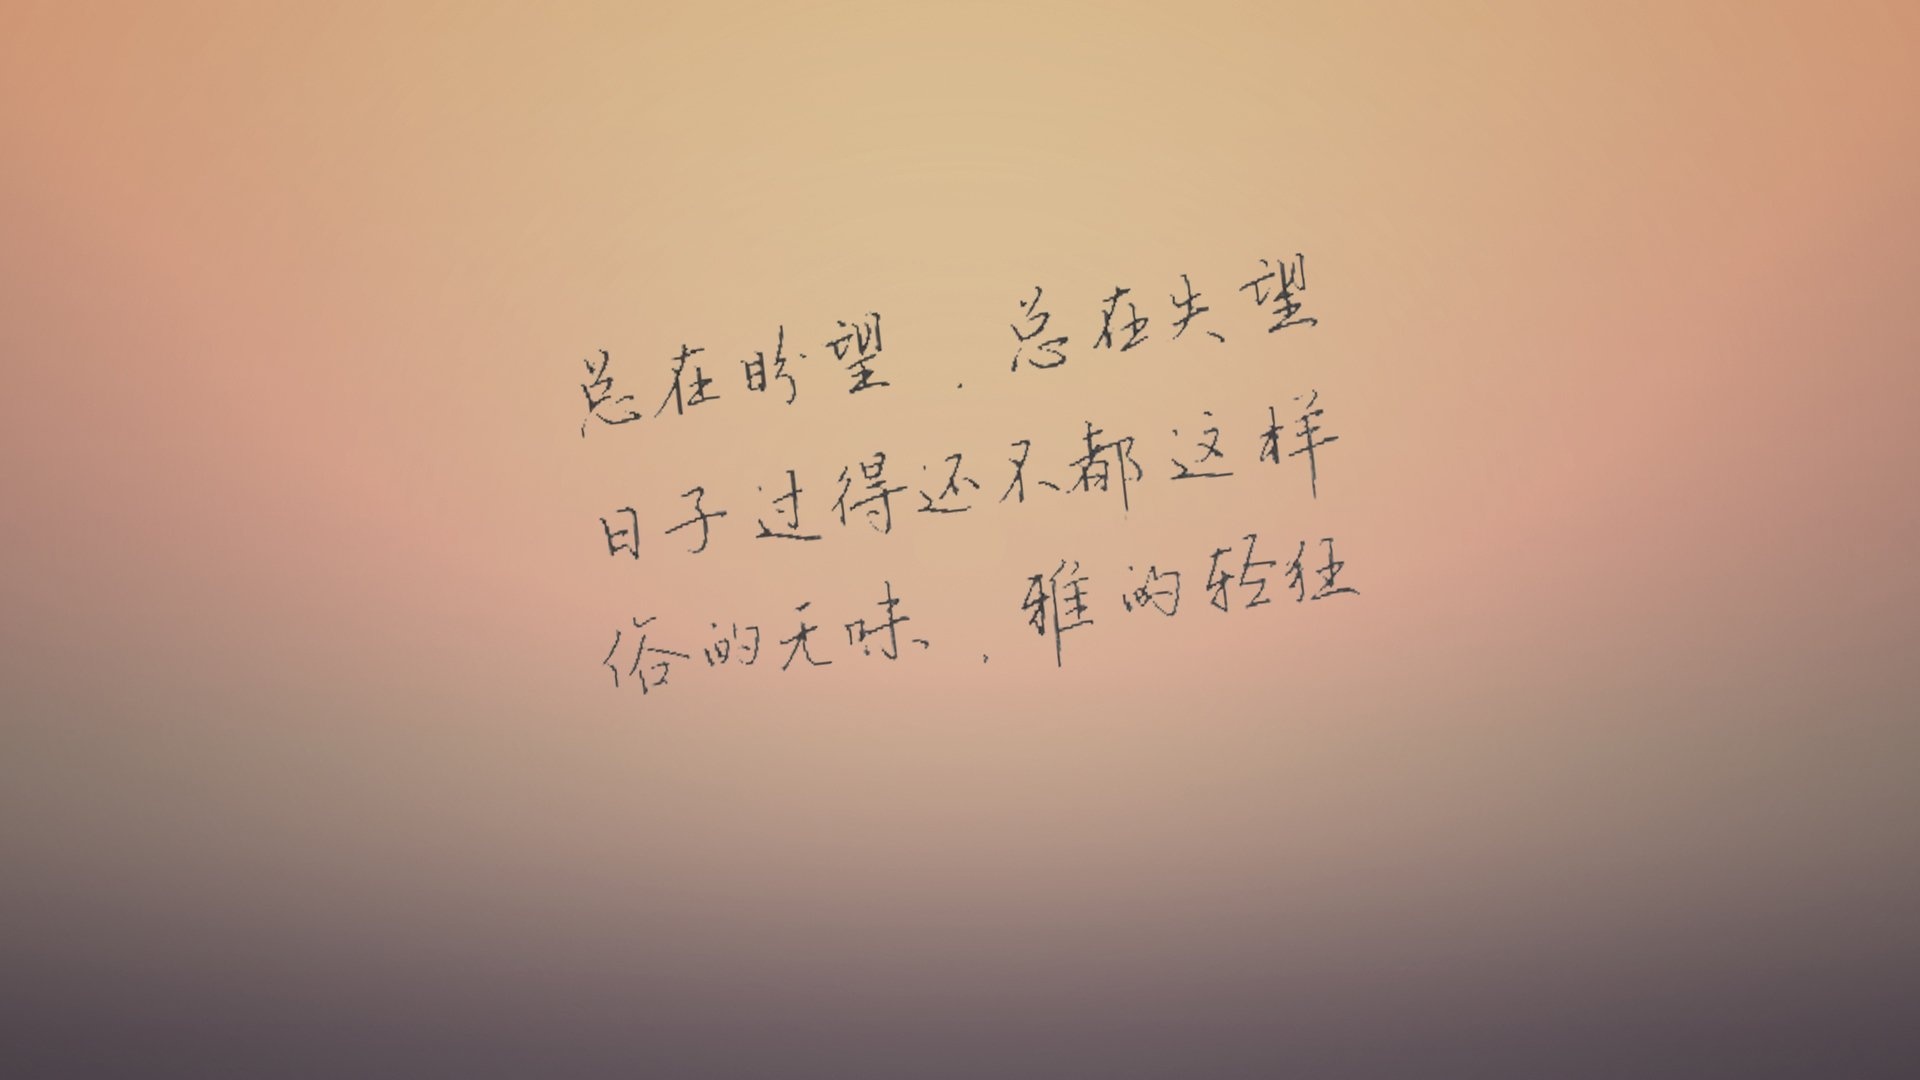 总在盼望，总在失望
日子过得还不都这样
俗的无味，雅的轻狂